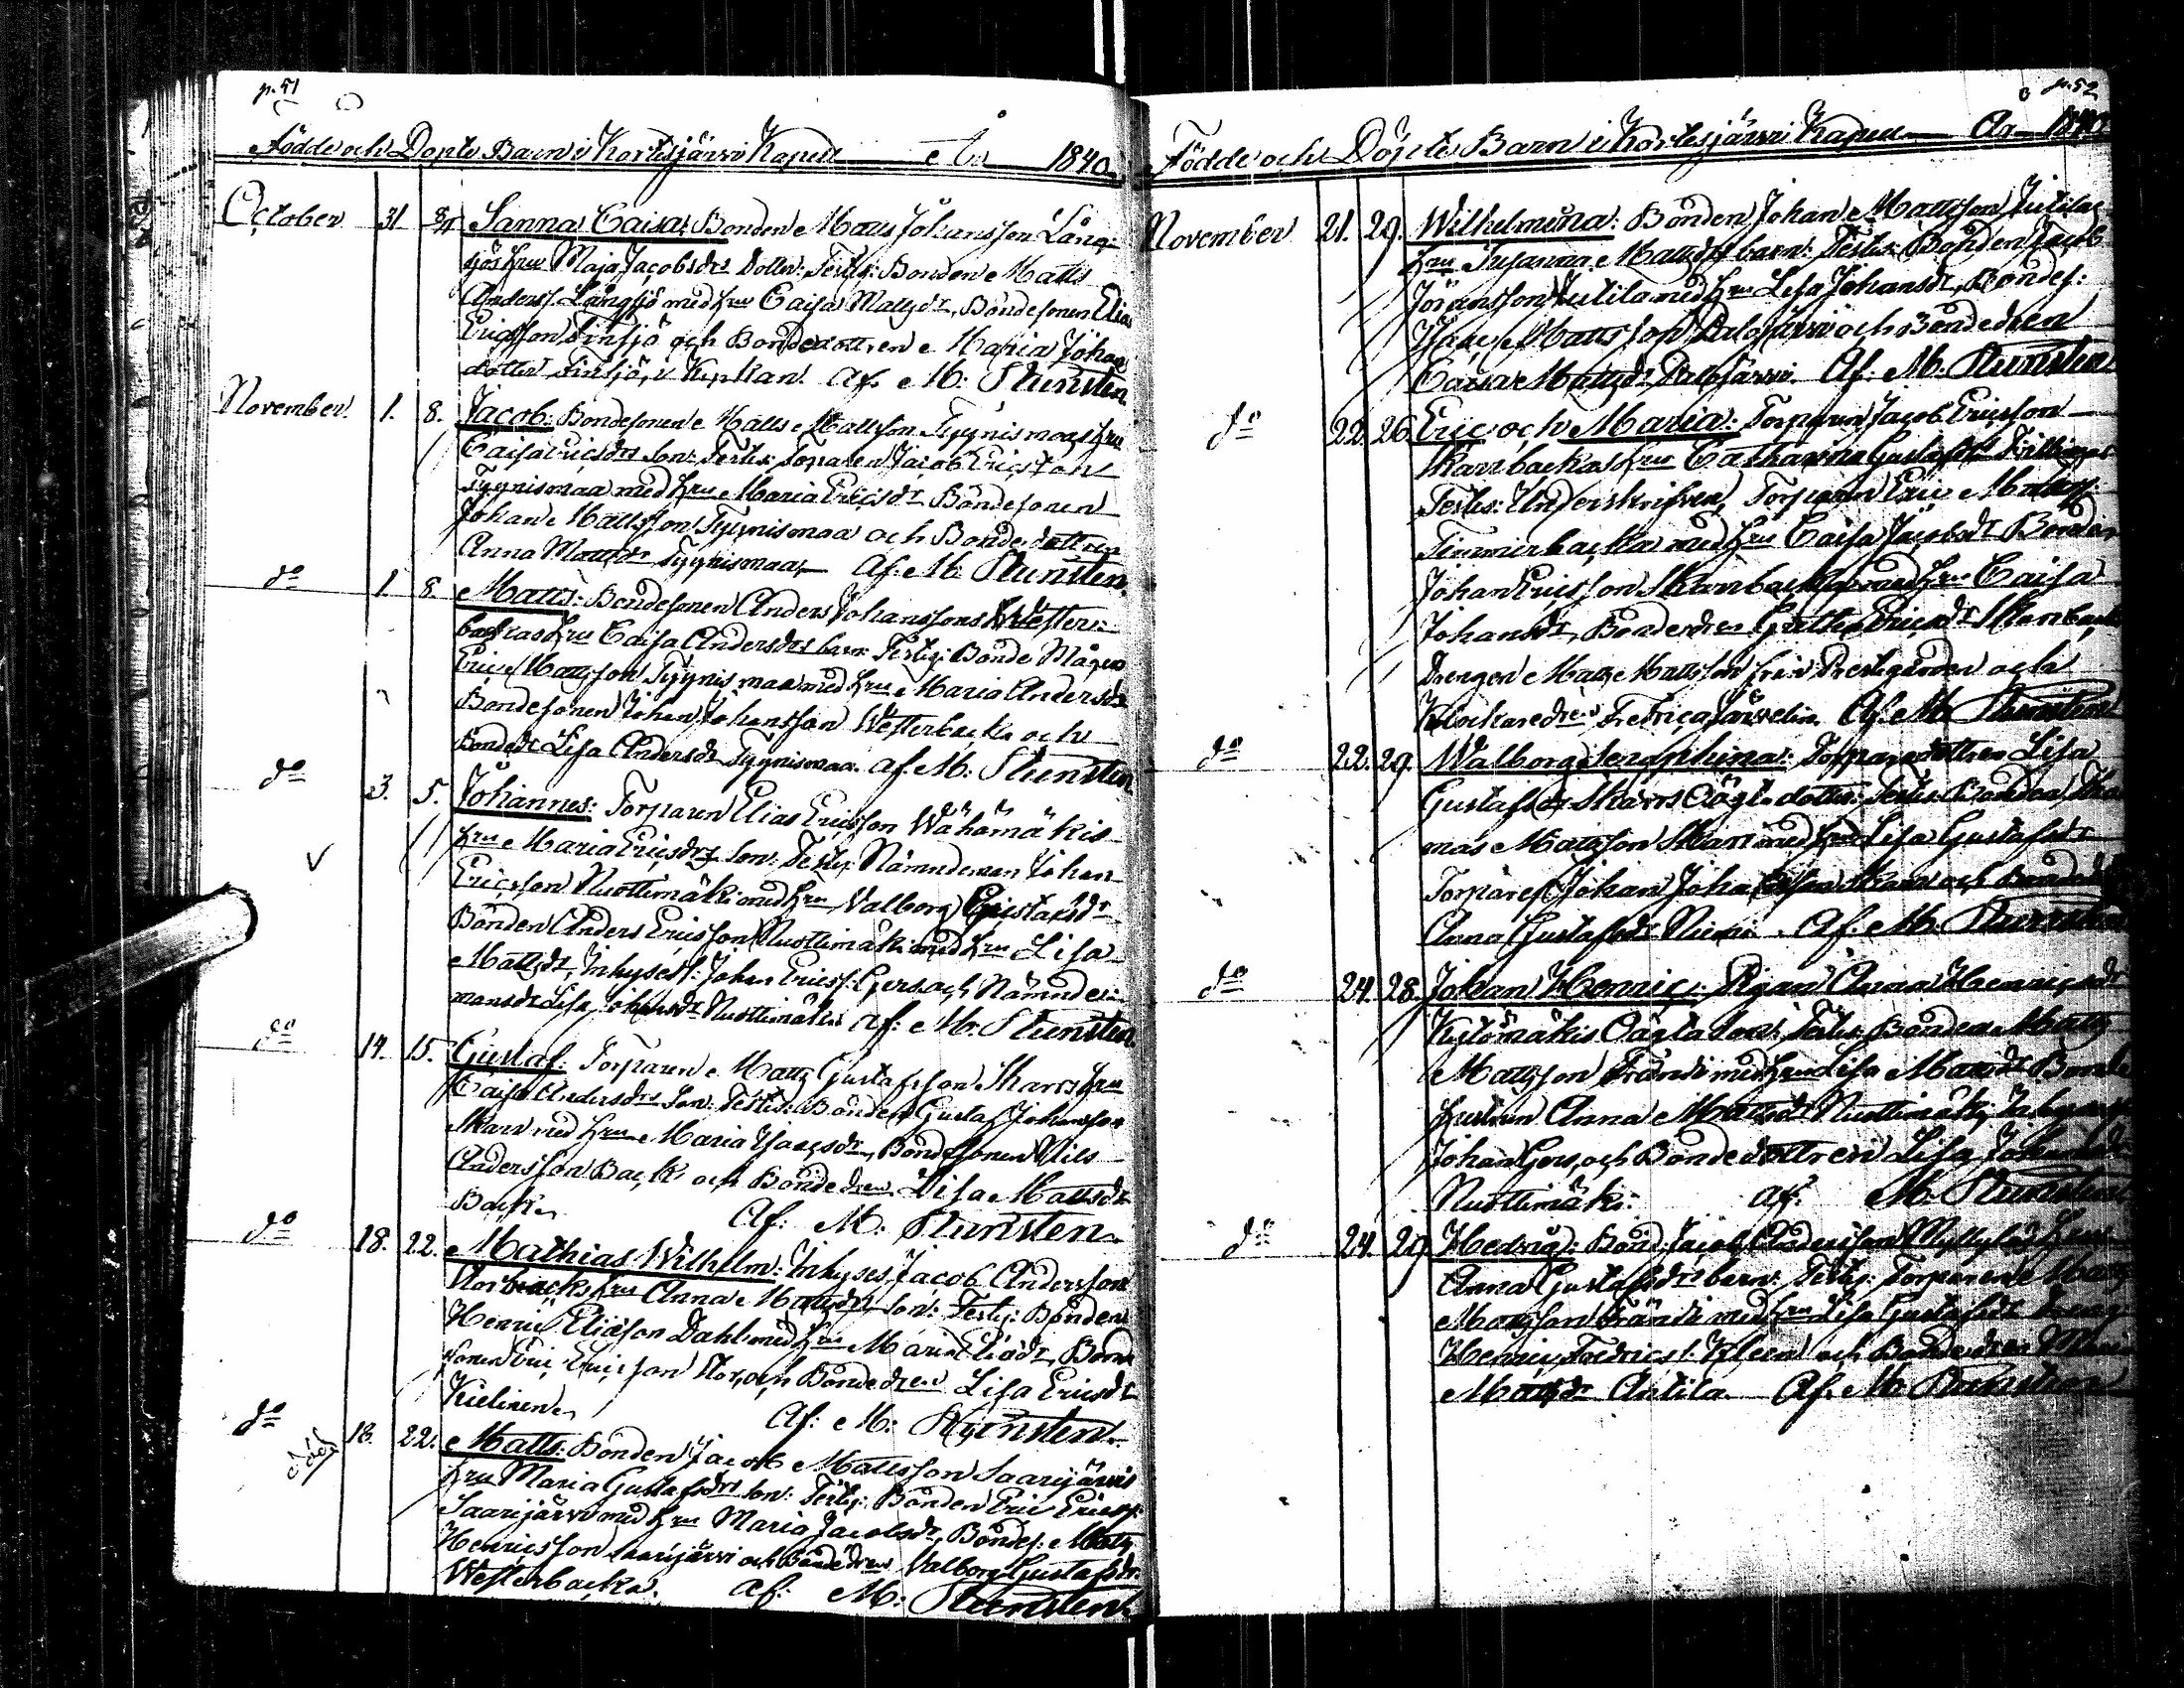 p. 51
Födde och Döpte Barn i Kortesjärvi Kapell År 1840.
October 31. 8/11 Sanna Caisa: Bonden Matts Johansson Lång-
sjös Hru Maja Jacobsdrs Dotter: Testes: Bonden Matts
Anderss. Långsjö med Hru Caisa Mattsdr, Bondesonen Elias
Ericsson Sintsjö och Bondedottren Maria Johans
dotter Sintsjö, Af. M: Stunsten.
November 1. 8. Jacob: Bondesonen Matts Mattsson Tyynismaas Hru
Caisa Ericsdrs Son: Testes: Torparen Jacob Ericsson
Tyynismaa med Hru Maria Ericsdr Bondesonen
Johan Mattsson Tyynismaa och Bondedottren
Anna Mattsdr Tyynismaa, Af. M: Stunsten.
do 1. 8. Matts: Bondesonen Anders Johanssons Wester-
backas Hru Caisa Andersdrs barn: Testes: Bonde Mågen
Eric Mattsson Tyynismaa med Hru Maria Andersdr
Bondesonen Johan Johansson Westerbacka och
Bondedr Lisa Andersdr Tyynismaa. af. M: Stunsten
do 3. 5. Johannes: Torparen Elias Ericsson Wähämäkis
Hru Maria Ericsdrs Son: Testes: Nämndeman Johan
Ericsson Nuottimäki med Hru Valborg Gustafsdr
Bonden Anders Ericsson Nuottimäki med Hru Lisa
Mattsdr, Inhyses: Johan Ericss: Gers och Nämnde-
mansdr Lisa Johansdr Nuottimäki af: M: Stunsten
do 14. 15. Gustaf: Torparen Matts Gustafsson Skarrs Hru
Caisa Andersdrs Son: Testes: Bonden Gustaf Johansson
Skarr med Hru Maria Isacsdr, Bondesonen Nils
Andersson Back och Bondedren Lisa Mattsdr
Back. Af: M: Stunsten.
do 18. 22. Mathias Wilhelm: Inhyses Jacob Andersson
Hru Anna Mattsdrs Son: Testes: Bonden
Henric Eliasson Dahl med Hru Maria Eliasdr, Bonde
sonen Eric Ericsson och Bondedren Lisa Ericsdr
Kielinen. Af: M: Stunsten.
do död 18. 22. Matts: Bonden Jacob Mattsson Saarijärvis
Hru Maria Gustafsdrs Son: Testes: Bonden Eric Ericss:
Saarijärvi med Hru Maria Jacobsdr, Bondes: Matts
Henricsson Saarijärvi och Bondedren Valborg Gustafsdr
Westerbacka. af: M: Stunsten.
p. 52
Födde och Döpte Barn i Kortesjärvi Kapell År 1840
November 21. 29. Wilhelmina: Bonden Johan Mattsson Jutilas
Hru Susanna Mattsdrs barn: Testes: Bonden Jacob
Jöransson Jutila med Hru Lisa Johansdr, Bondes:
Isaac Mattsson Palojärvi och Bondedren
Caisa Mattsdr Palojärvi. Af: M. Stunsten
do 22. 26. Eric och Maria: Torparen Jacob Ericsson
Skarrbackas Hru Catharina Gustafsdrs Tvillingar
Testes: Underskrifven, Torparen Eric Mattss:
Timmerbacka med Hru Caisa Jacobsdr Bonden
Johan Ericsson Skarrbacka med Hru Caisa
Johansdr, Bondedren Greta Ericsdr Skarrbacka
Drengen Matts Mattsson från Prestgården och
Klockaredren Fredrica Järvelin. Af. M. Stunsten
do 22. 29. Walborg Seraphina: Torparedottren Lisa
Gustafsdrs Skarrs Oägta dotter: Testes: Bonden Tho
mas Mattsson Skarr med Hru Lisa Gustafsdr
Torpares: Johan Johansson Skarr och Bondedr
Anna Gustafsdr Niemi. Af: M. Stunsten
do 24. 28. Johan Henric: Pigan Anna Henricsdr
Kytömäkis Oägta Son: Testes: Bonden Matts
Mattsson Brändi med Hru Lisa Mattsdr Bonde
hustrun Anna Mattsdr Nuottimäki, Inhyses
Johan Gers, och Bondedottren Lisa Johansdr
Nuottimäki: af: M. Stunsten
do 24. 29. Hedvig: Bond: Jacob Andersson Hru
Anna Gustafsdrs barn: Testes: Torparen Matts
Mattsson Brändi med Hru Lisa Gustafsdr Dreng
Henric Fredrics: Kleen och Bondedren Maria
Mattsdr Antila. Af. M. Stunsten